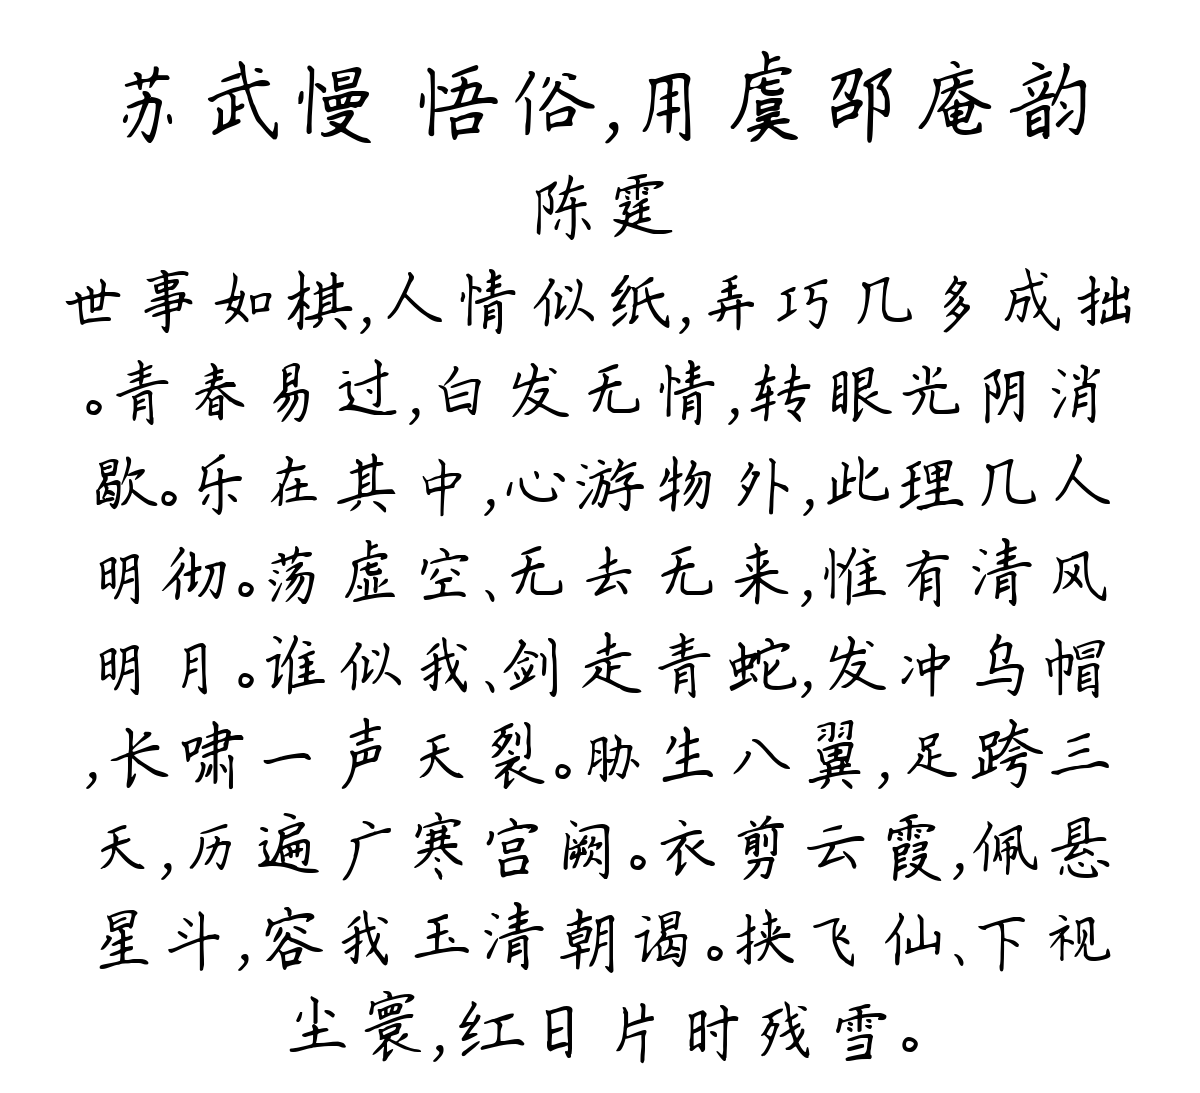 苏武慢 悟俗,用虞邵庵韵
陈霆
世事如棋,人情似纸,弄巧几多成拙
。青春易过,白发无情,转眼光阴消
歇。乐在其中,心游物外,此理几人
明彻。荡虚空、无去无来,惟有清风
明月。谁似我、剑走青蛇,发冲乌帽
,长啸一声天裂。胁生八翼,足跨三
天,历遍广寒宫阙。衣剪云霞,佩悬
星斗,容我玉清朝谒。挟飞仙、下视
尘寰,红日片时残雪。